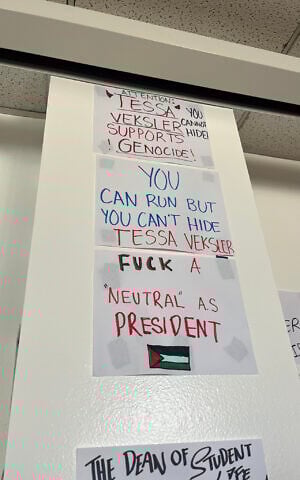 ATTENTION:
TESSA
VEKSLER
SUPPORTS
! GENOCIDE!
YOU
CANNOT
HIDE!
YOU
CAN RUN BUT
YOU CAN'T HIDE
TESSA VEKSLER
FUCK A
"NEUTRAL" A.S
PRESIDENT
THE DEAN OF STUDENT
LIFE